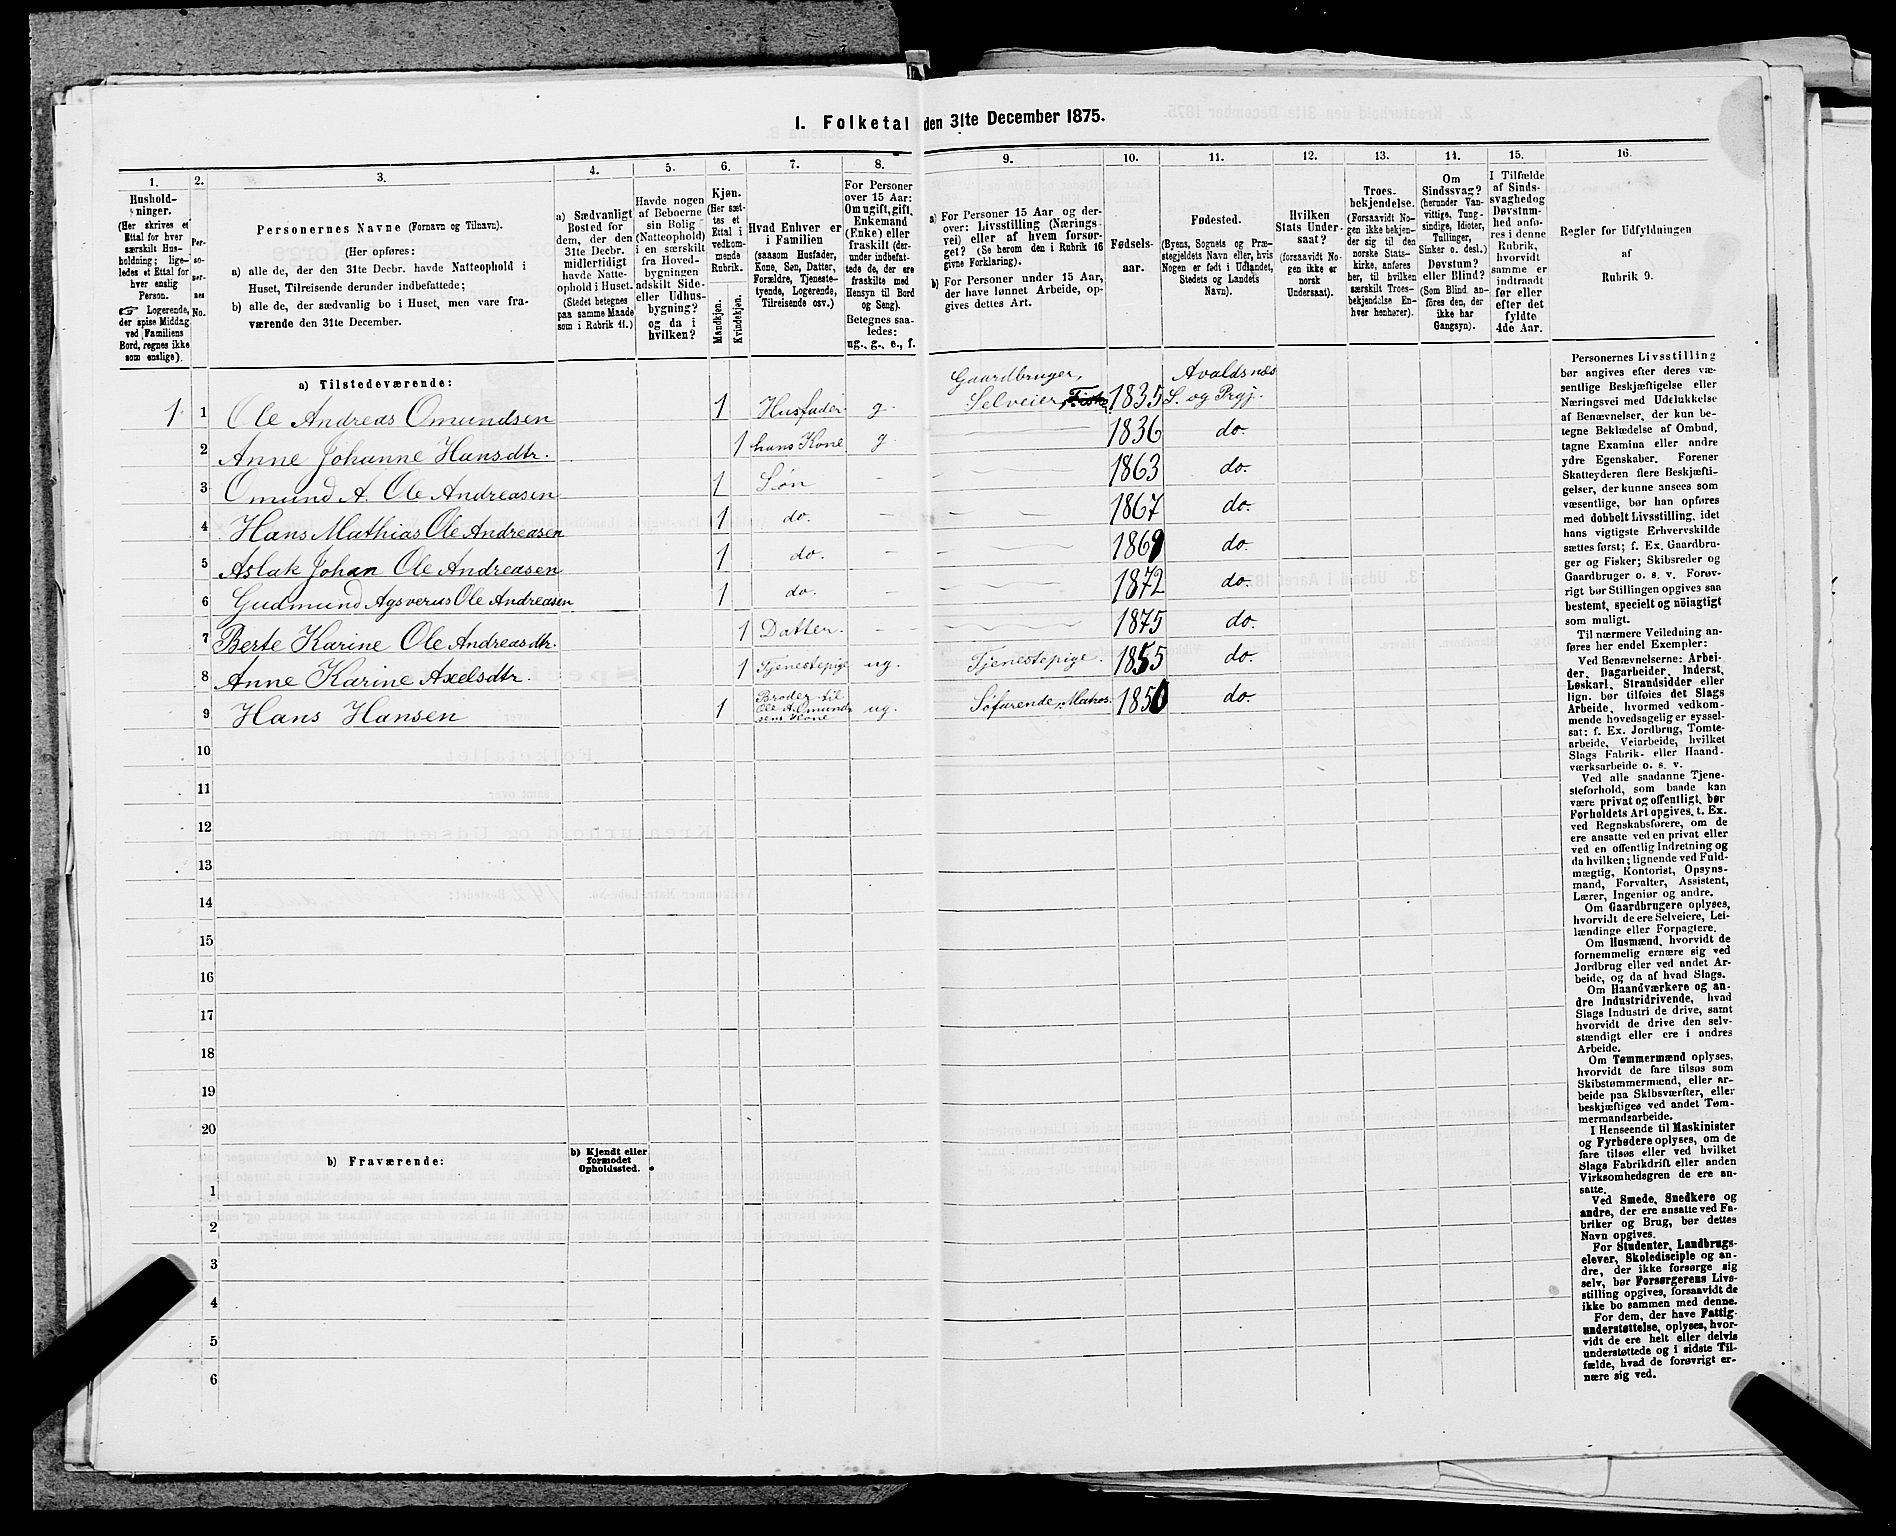 1. Folketal den 31te December 1875.
1.
Hushold-
ninger.
(Her skrives et
Ettal for hver
særskilt Hus-
holdning; lige-
ledes et Ettal for
hver enslig
Person.
☞ Logerende,
der spise Middag
ved Familiens
Bord, regnes ikke
som enslige).
2.
Per-
so-
ner-
nes
No.
3.
Personernes Navne (Fornavn og Tilnavn).
(Her opføres:
a) alle de, der den 31te Decbr. havde Natteophold i
Huset, Tilreisende derunder indbefattede;
b) alle de, der sædvanlig bo i Huset, men vare fra-
værende den 31te December.
4.
a) Sædvanligt
Bosted for
dem, der den
31te Decbr.
midlertidigt
havde Natte-
ophold i Huset.
(Stedet betegnes
paa samme Maade
som i Rubrik 11.)
5.
Havde nogen
af Beboerne
sin Bolig
(Natteophold)
i en særskilt
fra Hoved-
bygningen
adskilt Side-
eller Udhus-
bygning?
og da i
hvilken?
6.
Kjøn.
(Her sæt-
tes et
Ettal i
vedkom-
mende
Rubrik.
Mandkjøn.
Kvindekjøn.
7.
Hvad Enhver er
i Familien
(saasom Husfader,
Kone, Søn, Datter,
Forældre, Tjeneste-
tyende, Logerende,
Tilreisende osv.)
8.
For Personer
over 15 Aar:
Om ugift, gift,
Enkemand
(Enke) eller
fraskilt (der-
under indbefat-
tede de, der ere
fraskilte med
Hensyn til Bord
og Seng).
Betegnes saa-
ledes:
ug., g., e., f.
9.
a) For Personer 15 Aar og der-
over: Livsstilling (Nærings-
vei) eller af hvem forsør-
get? (Se herom den i Rubrik 16
givne Forklaring).
b) For Personer under 15 Aar,
der have lønnet Arbeide, op-
gives dettes Art.
10.
Fødsels-
aar.
11.
Fødested.
(Byens, Sognets og Præ-
stegjeldets Navn eller, hvis
Nogen er født i Udlandet,
Stedets og Landets
Navn).
12.
Hvilken
Stats Under-
saat?
(forsaavidt No-
gen ikke er
norsk
Undersaat).
13.
Troes-
bekjendelse.
(Forsaavidt No-
gen ikke bekjen-
der sig til den
norske Stats-
kirke, anføres
her, til hvilken
særskilt Troes-
bekjendelse En-
hver henhører).
14.
Om
Sindssvag?
(herunder Van-
vittige, Tung-
sindige, Idioter,
Tullinger,
Sinker o. desl.)
Døvstum?
eller Blind?
(Som Blind an-
føres den, der
ikke har
Gangsyn).
15.
I Tilfælde
af Sinds-
svaghed og
Døvstum-
hed anfø-
res i denne
Rubrik,
hvorvidt
samme er
indtraadt
før eller
efter det
fyldte
4de Aar.
16.
Regler for Udfyldningen
af
Rubrik 9.
a) Tilstedeværende:
1 1 Ole Andreas Omundsen 1 Husfader g. Gaardbruger, Selveier, Fisker 1835 Avaldsnæs S. og Prgj.
2 Anne Johanne Hansdtr. 1 hans Kone g. 1836 do.
3 Omund A. Ole Andreasen 1 Søn 1863 do.
4 Hans Mathias Ole Andreasen 1 do. 1867 do.
5 Aslak Johan Ole Andreasen 1 do. 1869 do.
6 Gudmund Agsverus Ole Andreasen 1 do. 1872 do.
7 Berte Karine Ole Andreasdtr. 1 Datter. 1875 do.
8 Anne Karine Axelsdtr. 1 Tjenestepige ug. Tjenestepige. 1855 do.
9 Hans Hansen 1 Broder til Ole A. Omundsens Kone ug. Søfarende, Matros. 1850 do.
10
11
12
13
14
15
16
17
18
19
20
b) Fraværende:
b) Kjendt eller
formodet
Opholdssted.
1
2
3
4
5
6
Personernes Livsstilling
bør angives efter deres væ-
sentlige Beskjæftigelse eller
Næringsvei med Udelukkelse
af Benævnelser, der kun be-
tegne Beklædelse af Ombud,
tagne Examina eller andre
ydre Egenskaber. Forener
Skatteyderen flere Beskjæfti-
gelser, der kunne ansees som
væsentlige, bør han opføres
med dobbelt Livsstilling, idet
hans vigtigste Erhvervskilde
sættes først; f. Ex. Gaardbru-
ger og Fisker; Skibsreder og
Gaardbruger o. s. v. Forøv-
rigt bør Stillingen opgives saa
bestemt, specielt og nöiagtigt
som muligt.
Til nærmere Veiledning an-
føres her endel Exempler:
Ved Benævnelserne: Arbei-
der, Dagarbeider, Inderst,
Løskarl, Strandsidder eller
lign. bør tilføies det Slags
Arbeide, hvormed vedkom-
mende hovedsagelig er syssel-
sat: f. Ex. Jordbrug, Tomte-
arbeide, Veiarbeide, hvilket
Slags Fabrik- eller Haand-
værksarbeide o. s. v.
Ved alle saadanne Tjene-
steforhold, som baade kan
være privat og offentligt, bør
Forholdets Art opgives, t. Ex.
ved Regnskabsførere, om de
ere ansatte ved en privat eller
ved en offentlig Indretning og
da hvilken; lignende ved Fuld-
mægtig, Kontorist, Opsyns-
mand, Forvalter, Assistent,
Lærer, Ingeniør og andre.
Om Gaardbrugere oplyses,
hvorvidt de ere Selveiere, Lei-
lændinge eller Forpagtere.
Om Husmænd, hvorvidt de
fornemmelig ernære sig ved
Jordbrug eller ved andet Ar-
beide, og da af hvad Slags.
Om Haandværkere og an-
dre Industridrivende, hvad
Slags Industri de drive, samt
hvorvidt de drive den selv-
stændigt eller ere i andres
Arbeide.
Om Tømmermænd oplyses,
hvorvidt de fare tilsøs som
Skibstømmermænd, eller ar-
beide paa Skibsværfter, eller
beskjæftiges ved andet Tøm-
mermandsarbeide.
I Henseende til Maskinister
og Fyrbødere oplyses, om de
fare tilsøs eller ved hvilket
Slags Fabrikdrift eller anden
Virksomhedsgren de ere an-
satte.
Ved Smede, Snedkere og
andre, der ere ansatte ved Fa-
briker og Brug, bør dettes
Navn opgives.
For Studenter, Landbrugs-
elever, Skoledisciple og an-
dre, der ikke forsørge sig
selv, bør Forsørgerens Livs-
stilling opgives, forsaavidt de
ikke bo sammen med denne.
For dem, der have Fattig-
understøttelse, oplyses, hvor-
vidt de ere helt eller delvis
understøttede og i sidste Til-
fælde, hvad de forøvrigt er-
nære sig ved.